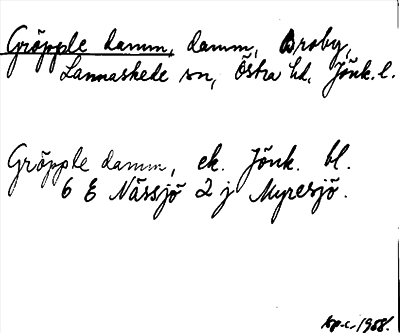 Gröpple damm, damm, Broby,
Lannaskede sn, Östra hd, Jönk. l.
Gröpple damm, ek. Jönk. bl.
6 E Nässjö 2 j Myresjö.
top.c. 1958.